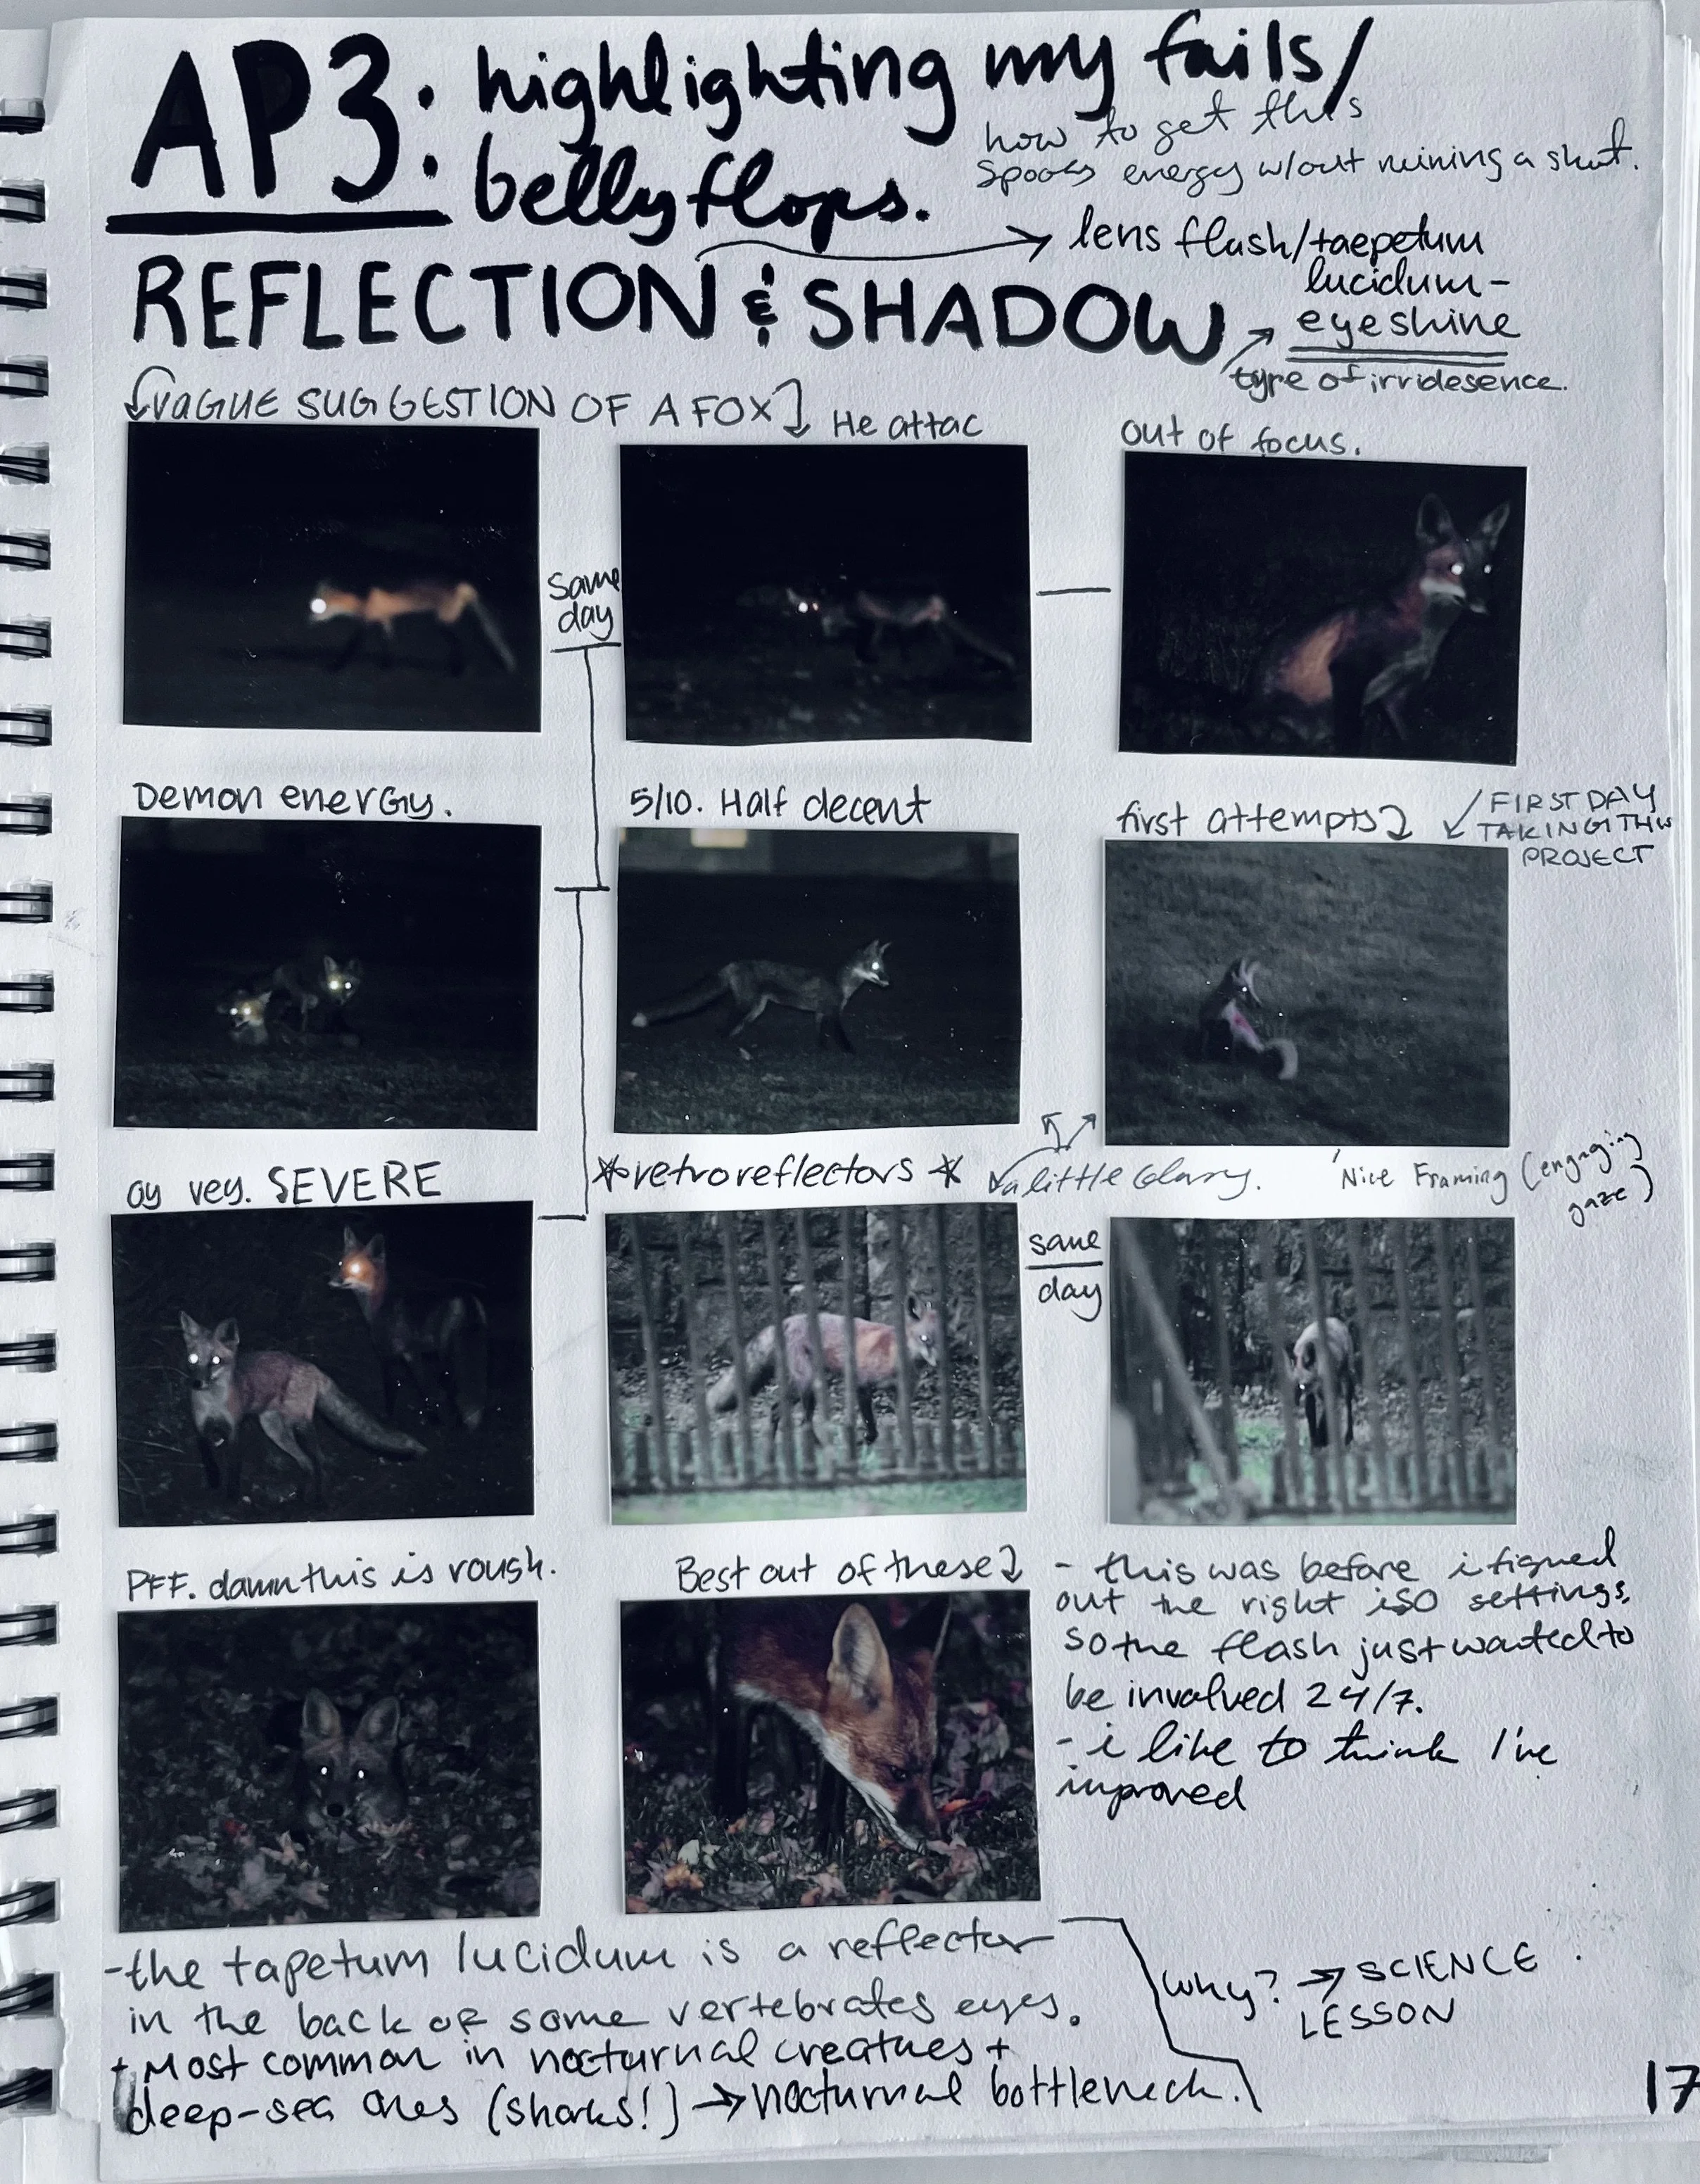 AP3: highlighting my fails/
bellyflops.
how to get this
spooky energy w/out ruining a shot.
lens flash/taepetum
lucidum-
eyeshine
type of irridesence.
REFLECTION & SHADOW
VAGUE SUGGESTION OF A FOX
He attac
out of focus.
Same
day
Demon energy.
5/10. Half decent
first attempts
FIRST DAY
TAKING THIS
PROJECT
oy vey. SEVERE
*retroreflectors*
a little blurry.
Nice Framing (engaging
gaze)
same
day
PFF. damn this is rough.
Best out of these
- this was before i figured
out the right iso settings,
so the flash just wanted to
be involved 24/7.
- i like to think I've
improved
-the tapetum lucidum is a reflector
in the back of some vertebrates eyes.
+ Most common in nocturnal creatures +
deep-sea ones (sharks!) → nocturnal bottleneck.
why? → SCIENCE
LESSON
17